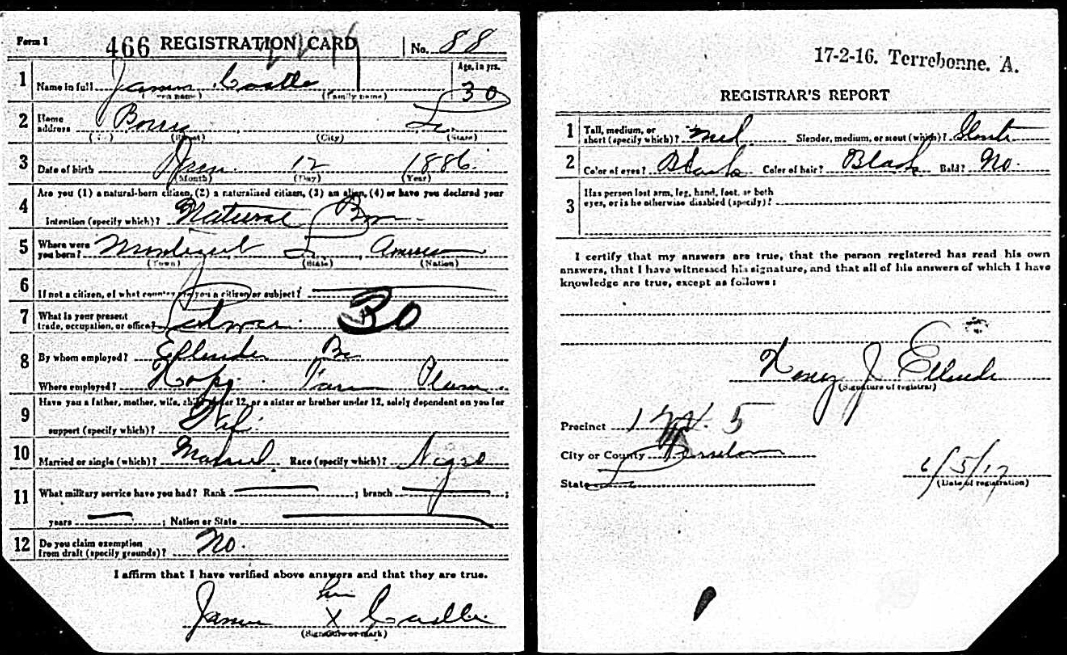 Form 1 466 REGISTRATION CARD No. 88
1 Name in full James Castle Age, in yrs. 30
(Given name) (Family name)
2 Home address Bourg La
(No.) (Street) (City) (State)
3 Date of birth 12 1886
(Month) (Day) (Year)
4 Are you (1) a natural-born citizen, (2) a naturalized citizen, (3) an alien, (4) or have you declared your
intention (specify which)? Natural Born
5 Where were you born? Montegut La American
(Town) (State) (Nation)
6 If not a citizen, of what country are you a citizen or subject?
7 What is your present trade, occupation, or office? 30
8 By whom employed? Ellender
Where employed? Hope Farm
9 Have you a father, mother, wife, child under 12, or a sister or brother under 12, solely dependent on you for
support (specify which)? Wife
10 Married or single (which)? Married Race (specify which)? Negro
11 What military service have you had? Rank ; branch ;
years ; Nation or State
12 Do you claim exemption from draft (specify grounds)? No.
I affirm that I have verified above answers and that they are true.
his
James X Castle
(Signature or mark)
17-2-16. Terrebonne. A.
REGISTRAR'S REPORT
1 Tall, medium, or short (specify which)? Med Slender, medium, or stout (which)? Stout
2 Color of eyes? Black Color of hair? Black Bald? No
3 Has person lost arm, leg, hand, foot, or both
eyes, or is he otherwise disabled (specify)?
I certify that my answers are true, that the person registered has read his own
answers, that I have witnessed his signature, and that all of his answers of which I have
knowledge are true, except as follows:
J Ellender
(Signature of registrar)
Precinct 5
City or County Terrebonne
State La 6/5/17
(Date of registration)